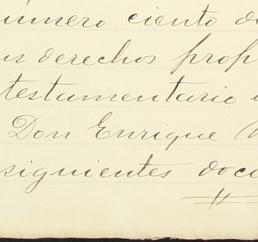 número ciento do
us derechos prop
testamentario
Don Enrique
siguientes docu